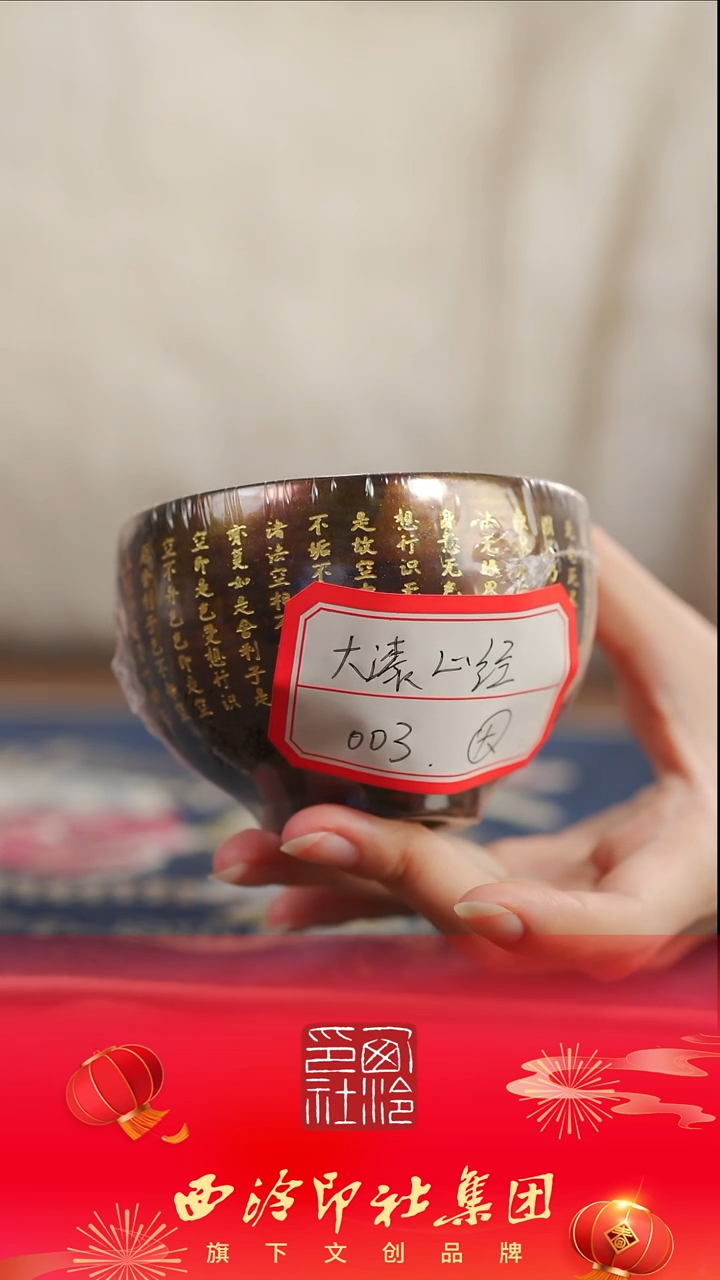 空不异色色即是空
空即是色受想行识
亦复如是舍利子是
诸法空相
不垢不
是故空
想行识无
身意无
法无眼界
大漆心经
003. 大
西泠印社
西泠印社集团
旗下文创品牌